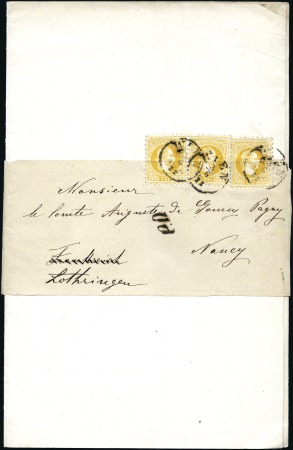 Monsieur
le Comte Auguste de Gourcy Pagny
PD
Nancy
Frankreich
Lothringen